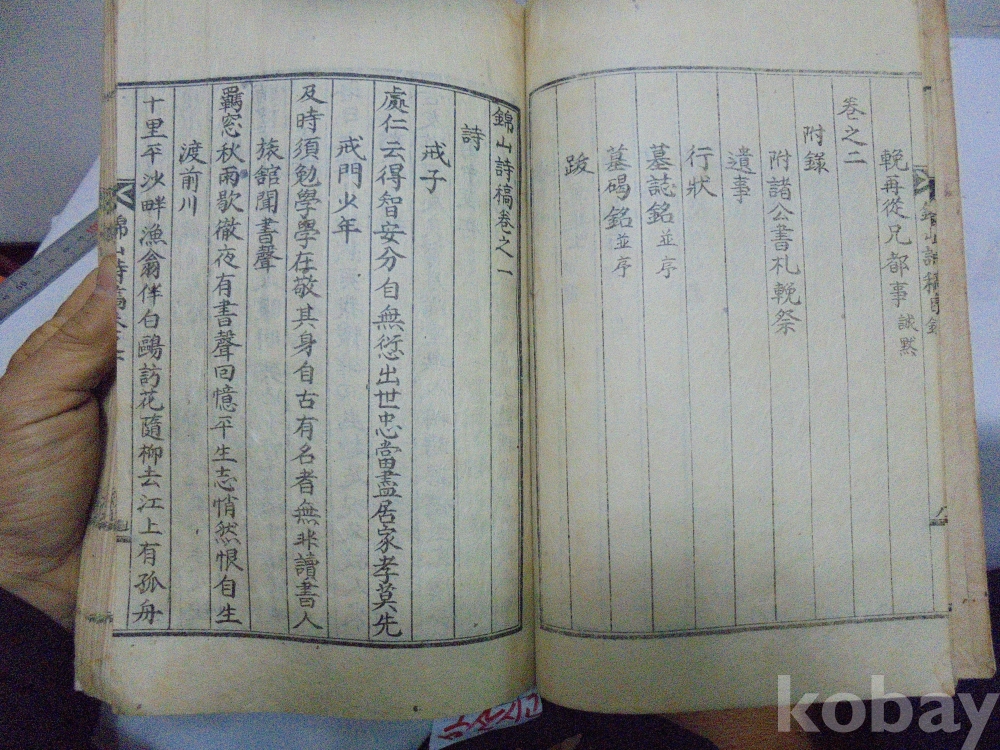 輓再從兄都事 誠默
卷之二
附錄
附諸公書札輓祭
遺事
行狀
墓誌銘 並序
墓碣銘 並序
跋
錦山詩稿卷之一
詩
戒子
處仁云得智安分自無愆出世忠當盡居家孝莫先
戒門少年
及時須勉學學在敬其身自古有名者無非讀書人
旅舘聞書聲
羈窓秋雨歇徹夜有書聲回憶平生志悄然恨自生
渡前川
十里平沙畔漁翁伴白鷗訪花隨柳去江上有孤舟
금산시고
kobay